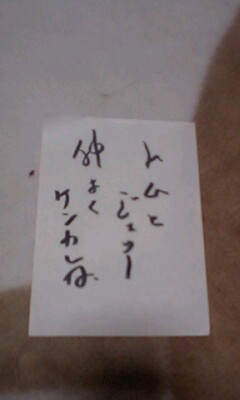 トムと
ジェリー
仲よく
ケンカしな